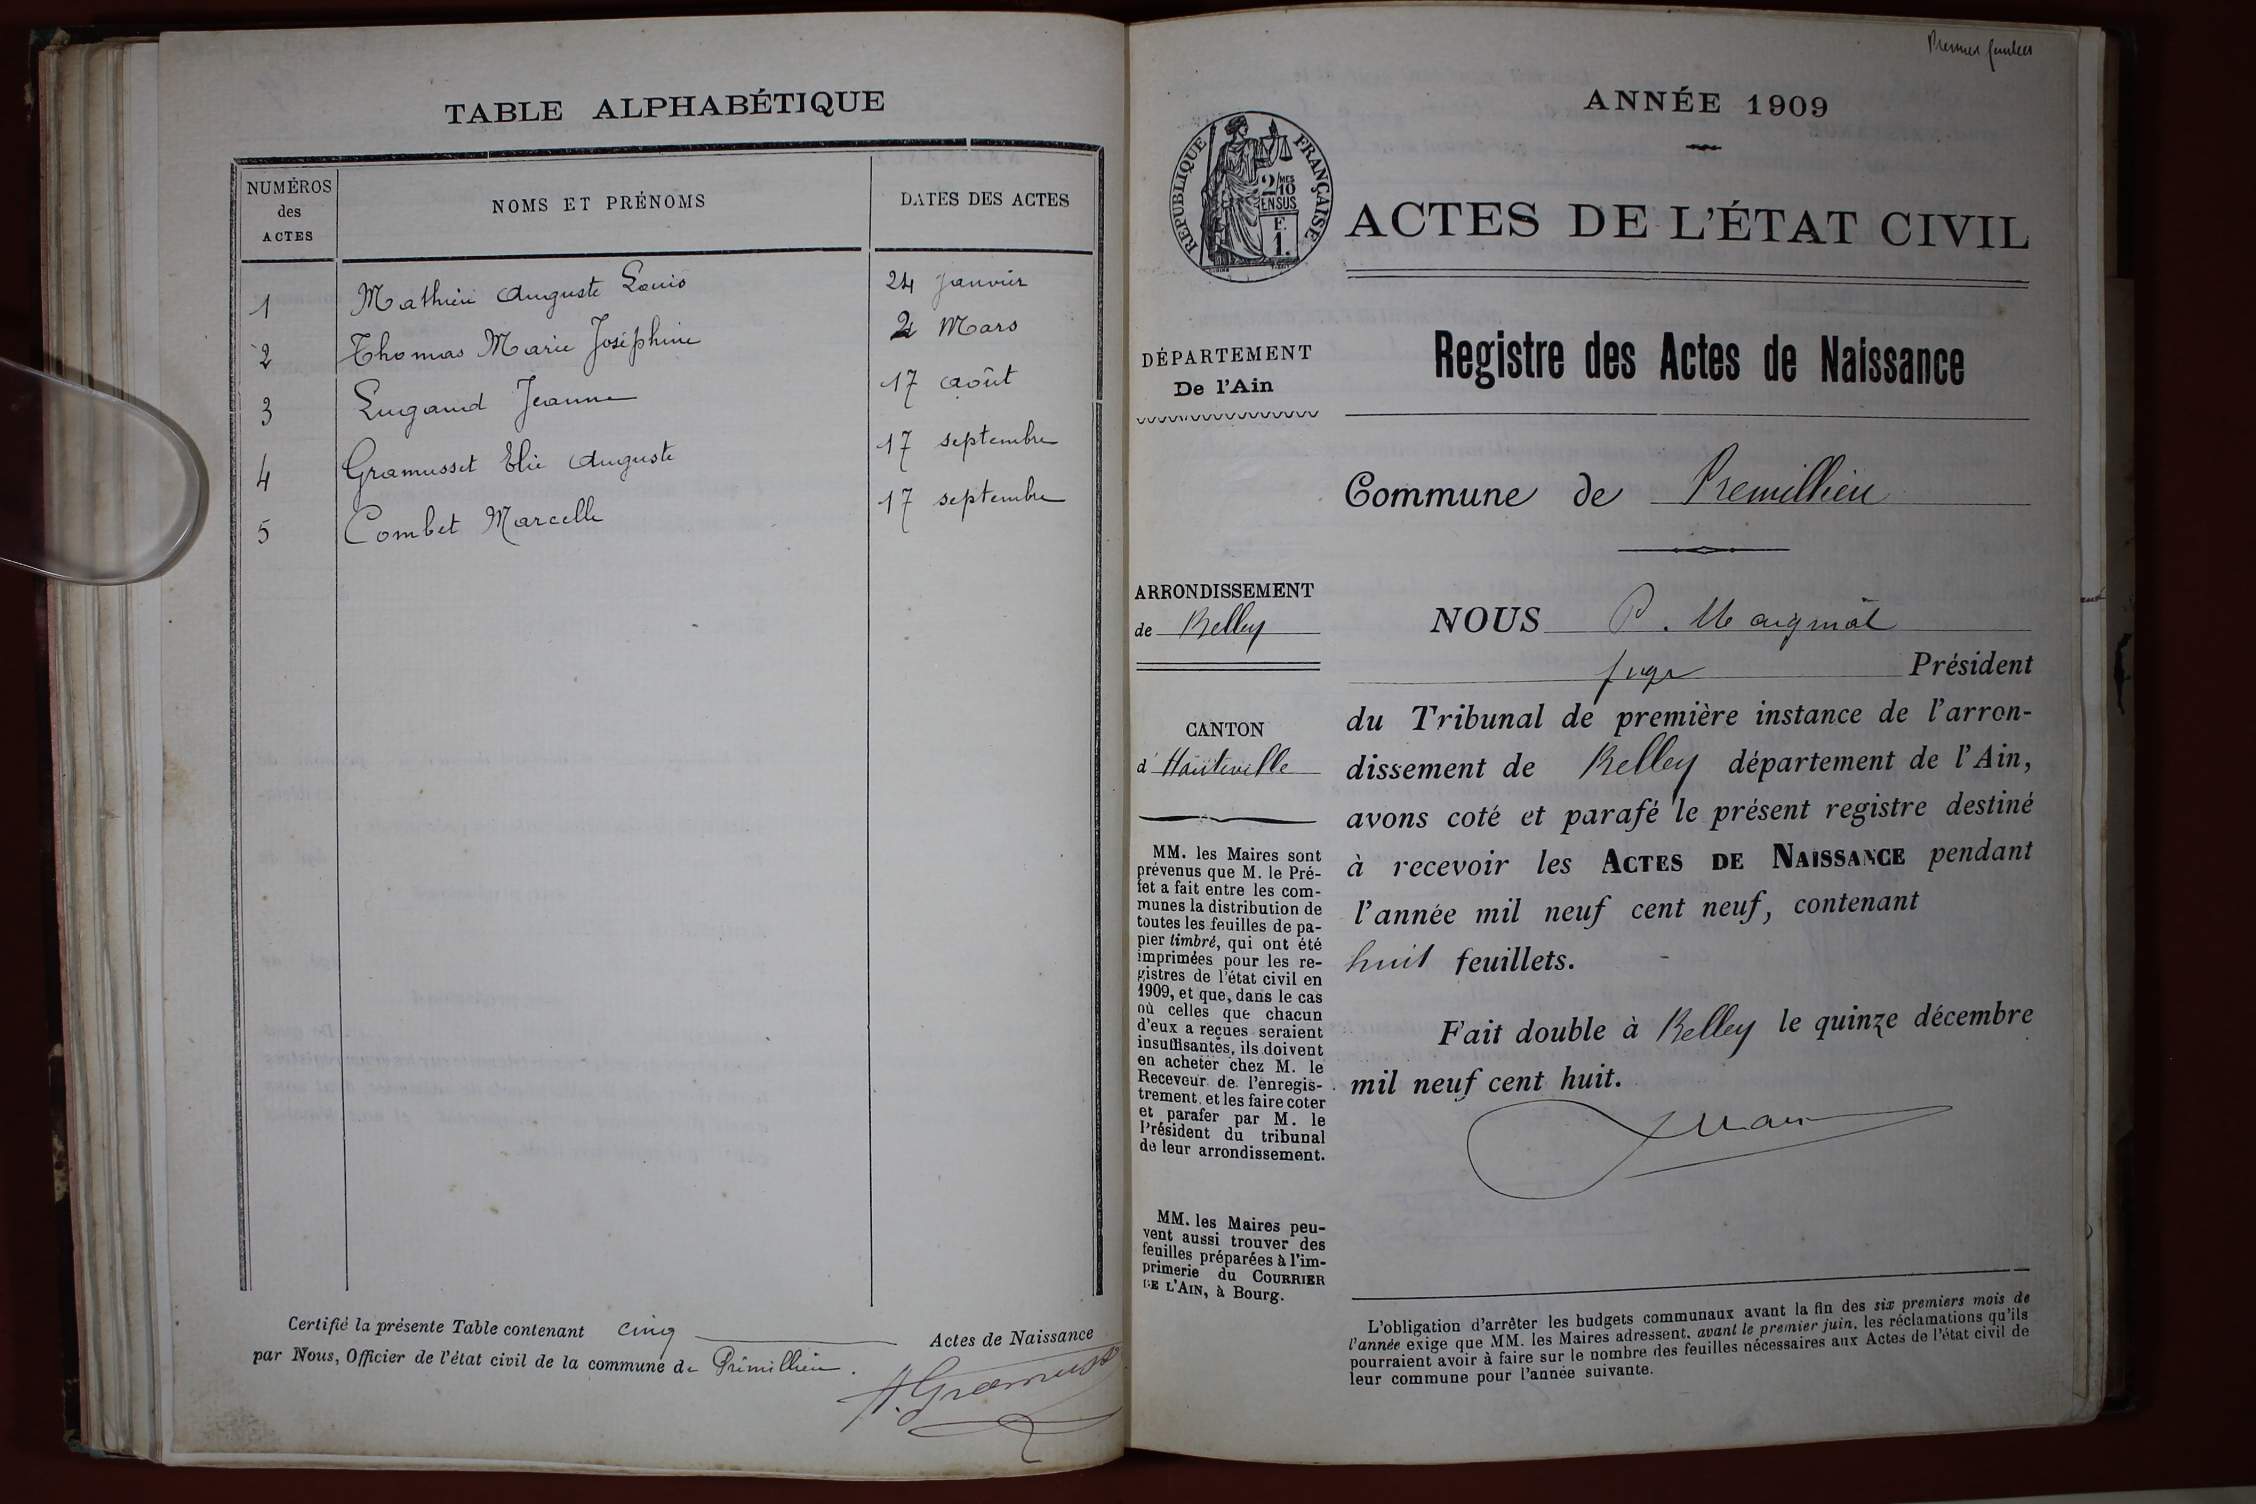 TABLE ALPHABÉTIQUE
NUMÉROS
des
ACTES
NOMS ET PRÉNOMS
DATES DES ACTES
1 Mathieu Auguste Louis 24 janvier
2 Thomas Marie Joséphine 2 Mars
3 Lugand Jeanne 17 août
4 Gramusset Elie Auguste 17 septembre
5 Combet Marcelle 17 septembre
Certifié la présente Table contenant cinq Actes de Naissance
par Nous, Officier de l'état civil de la commune de Prémillieu.
A. Gramusset
Premier feuillet
ANNÉE 1909
RÉPUBLIQUE FRANÇAISE
2/10 MES
EN SUS
F.
1.
ACTES DE L'ÉTAT CIVIL
DÉPARTEMENT
De l'Ain
Registre des Actes de Naissance
Commune de Premillieu
ARRONDISSEMENT
de Belley
CANTON
d'Hauteville
MM. les Maires sont
prévenus que M. le Pré-
fet a fait entre les com-
munes la distribution de
toutes les feuilles de pa-
pier timbré, qui ont été
imprimées pour les re-
gistres de l'état civil en
1909, et que, dans le cas
où celles que chacun
d'eux a reçues seraient
insuffisantes, ils doivent
en acheter chez M. le
Receveur de l'enregis-
trement, et les faire coter
et parafer par M. le
Président du tribunal
de leur arrondissement.
MM. les Maires peu-
vent aussi trouver des
feuilles préparées à l'im-
primerie du COURRIER
DE L'AIN, à Bourg.
NOUS P.
juge Président
du Tribunal de première instance de l'arron-
dissement de Belley département de l'Ain,
avons coté et parafé le présent registre destiné
à recevoir les ACTES DE NAISSANCE pendant
l'année mil neuf cent neuf, contenant
huit feuillets.
Fait double à Belley le quinze décembre
mil neuf cent huit.
L'obligation d'arrêter les budgets communaux avant la fin des six premiers mois de
l'année exige que MM. les Maires adressent, avant le premier juin, les réclamations qu'ils
pourraient avoir à faire sur le nombre des feuilles nécessaires aux Actes de l'état civil de
leur commune pour l'année suivante.